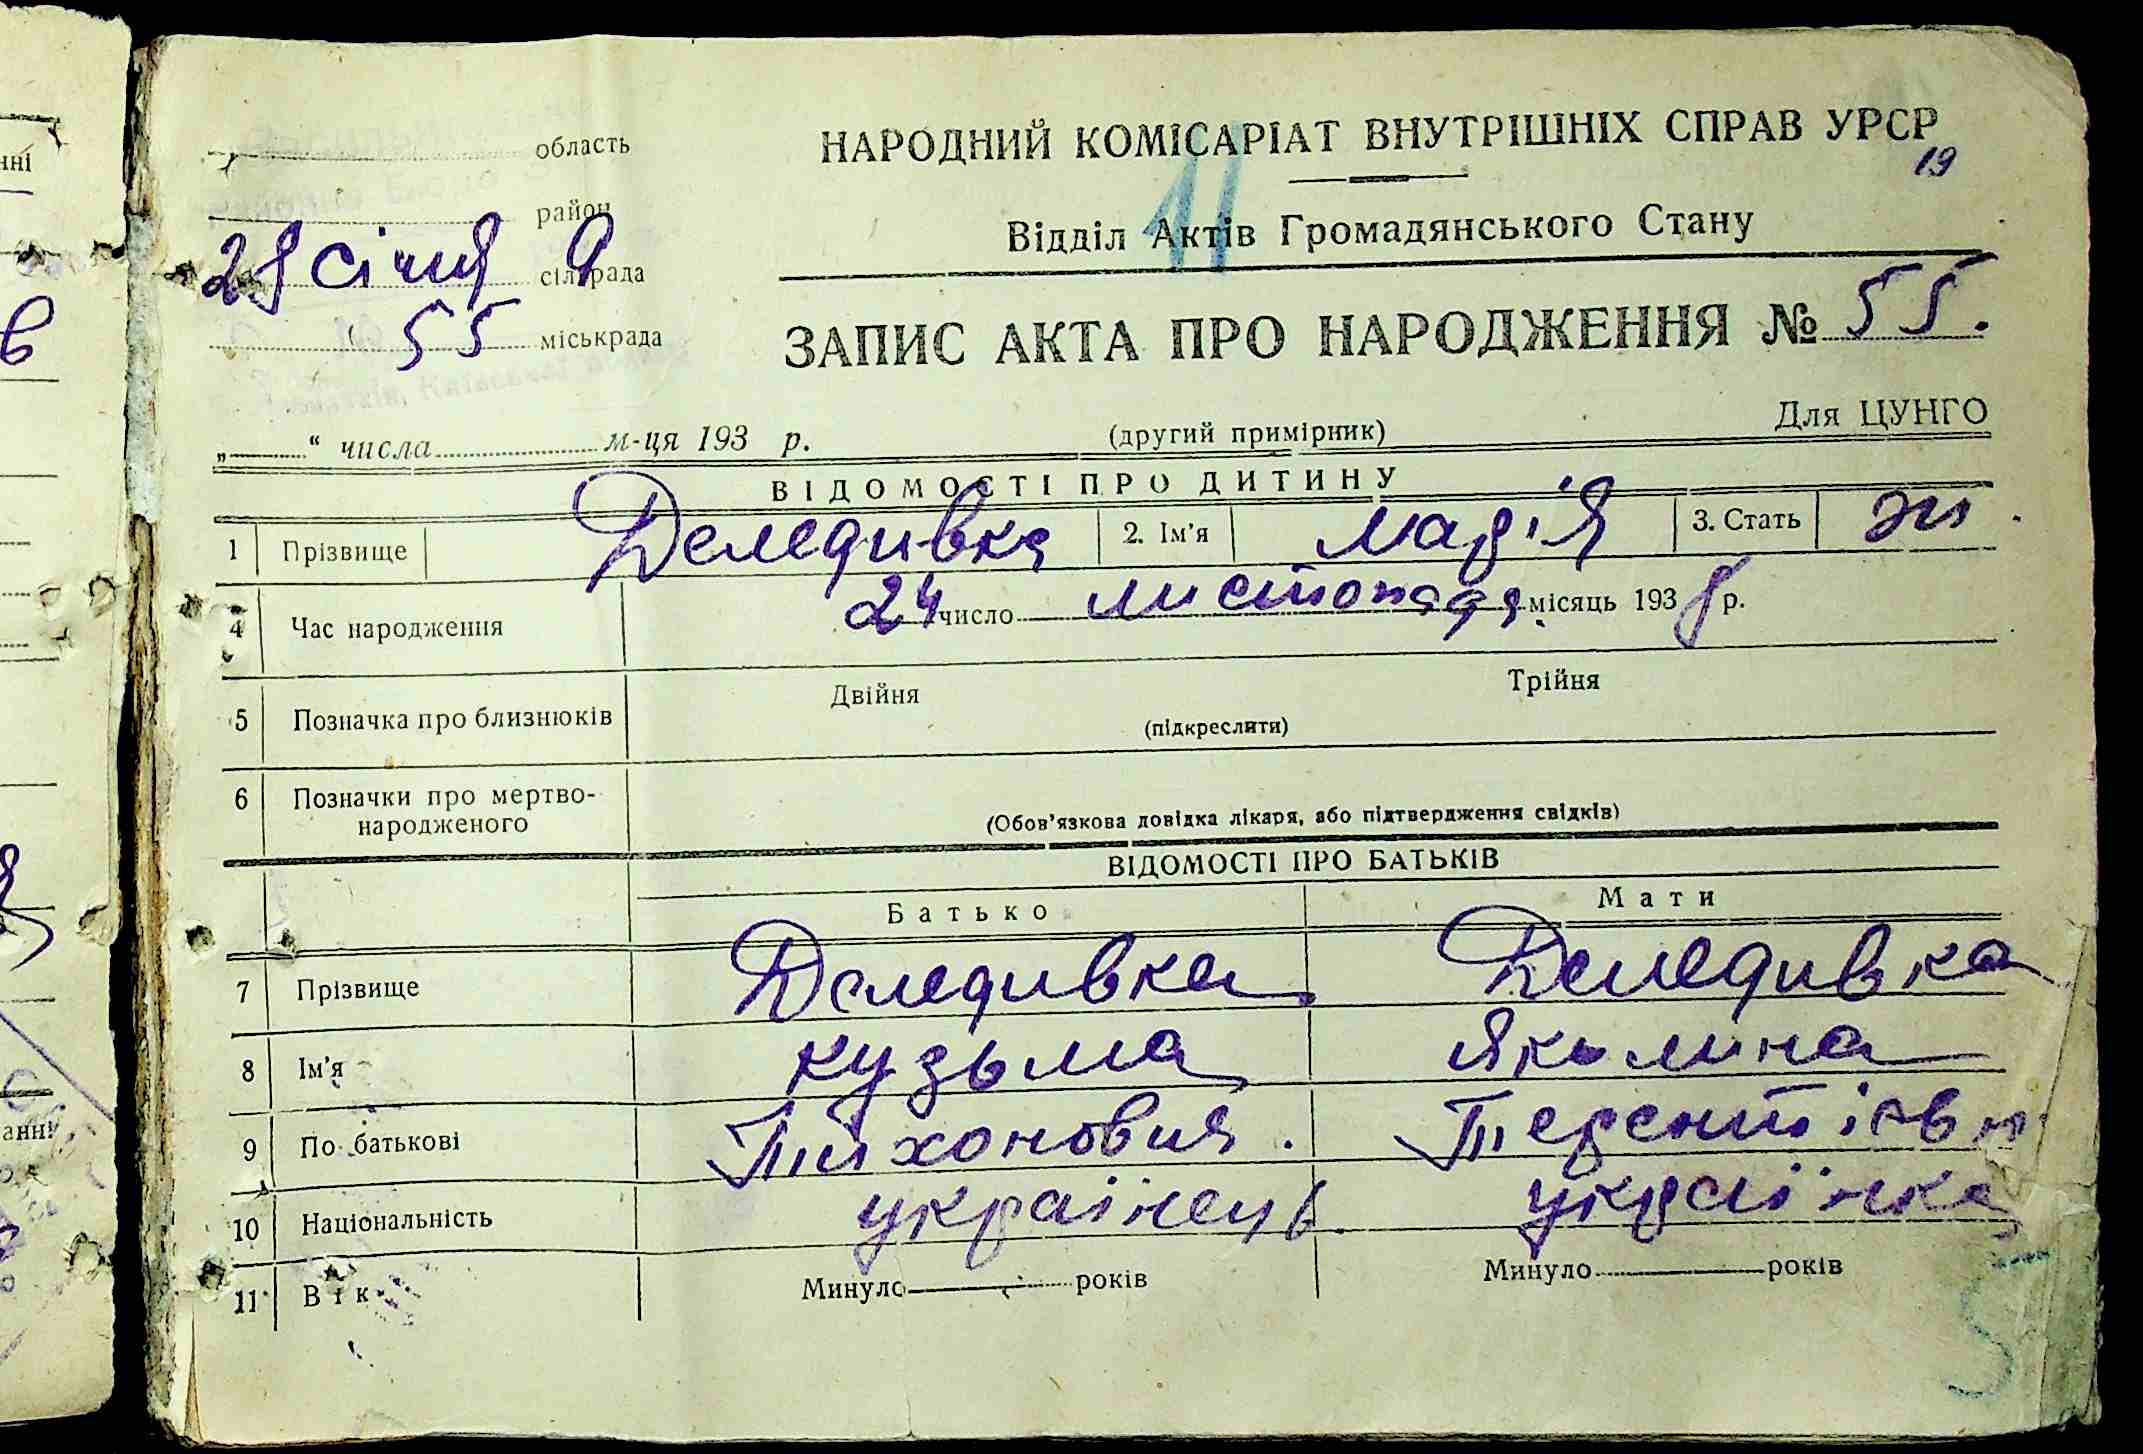 область
НАРОДНИЙ КОМІСАРІАТ ВНУТРІШНІХ СПРАВ УРСР
19
район
11
Відділ Актів Громадянського Стану
28 січня 9
сілʼрада
55 міськрада
ЗАПИС АКТА ПРО НАРОДЖЕННЯ № 55.
Для ЦУНГО
„ “ числа м-ця 193 р.
(другий примірник)
ВІДОМОСТІ ПРО ДИТИНУ
1 Прізвище Деледивка 2. Ім'я Марія 3. Стать ж
4 Час народження 24 число листопада місяць 1938 р.
5 Позначка про близнюків Двійня Трійня
(підкреслити)
6 Позначки про мертво-
народженого
(Обов'язкова довідка лікаря, або підтвердження свідків)
ВІДОМОСТІ ПРО БАТЬКІВ
Батько Мати
7 Прізвище Деледивка Деледивка
8 Ім'я Кузьма Якилина
9 По батькові Тихонович. Терентієвн
10 Національність українець українка
11 Вік Минуло років Минуло років